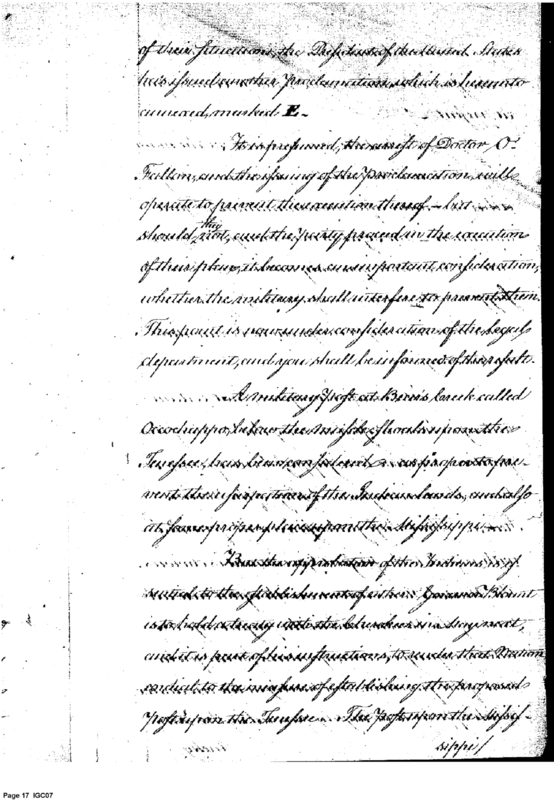 of their situation, the President of the United States
has issued another Proclamation, which is hereunto
annexed, marked E.
It is presumed, the arrest of Doctor O'
Fallon, and the issuing of the Proclamation, will
operate to prevent the execution thereof - but
should they not, and the party proceed in the execution
of their plan, it becomes an important consideration,
whether the military shall interfere to prevent them.
This point is now under consideration of the legal
department, and you shall be informed of the result.
A military Post at Bears Creek called
Occochappo, below the muscle Shoals upon the
Tenessee, has been considered as proper to pre-
vent the usurpation of the Indian lands, and also
at some proper place upon the Mississippi.
But the approbation of the Indians is
to the establishment of either. Governor Blount
is to hold a treaty with the Cherokees in May next,
and it is part of his instructions, to render that Nation
to the measure of establishing the proposed
Post upon the Tenessee. The Post upon the Missis-
sippi/
Page 17 IGC07